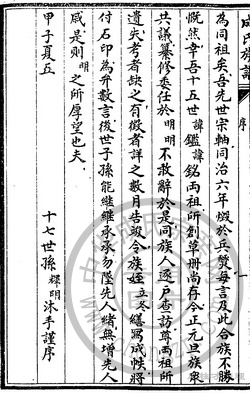 為同祖矣吾先世宗軸同治六年燬於兵燹每言及此合族不勝
慨然幸吾十五世諱鑑諱銘兩祖所創草冊尚存今正元旦族衆
共議纂修委任於明明不敢辭於是同族人逐戶查訪尊兩祖所
遺失考者缺之有徵者詳之數月告竣令族姪立冬繕寫成帙將
付石印為弁數言後世子孫能繼繼承承勿墜先人緒無增先人
慼是則明之所厚望也夫
甲子夏五
十七世孫明沐手謹序